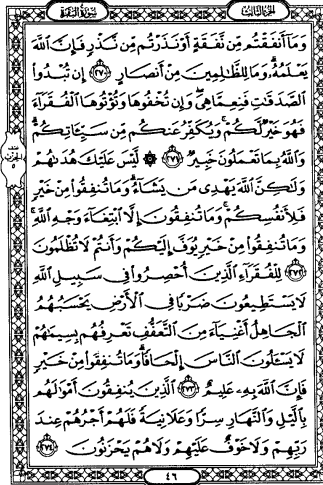 الجزء الثالث
سورة البقرة
وَمَا أَنفَقْتُم مِّن نَّفَقَةٍ أَوْ نَذَرْتُم مِّن نَّذْرٍ فَإِنَّ اللَّهَ
يَعْلَمُهُ ۗ وَمَا لِلظَّالِمِينَ مِنْ أَنصَارٍ ٢٧٠ إِن تُبْدُوا
الصَّدَقَاتِ فَنِعِمَّا هِيَ ۖ وَإِن تُخْفُوهَا وَتُؤْتُوهَا الْفُقَرَاءَ
فَهُوَ خَيْرٌ لَّكُمْ ۚ وَيُكَفِّرُ عَنكُم مِّن سَيِّئَاتِكُمْ ۗ
وَاللَّهُ بِمَا تَعْمَلُونَ خَبِيرٌ ٢٧١ ۞ لَّيْسَ عَلَيْكَ هُدَاهُمْ
وَلَٰكِنَّ اللَّهَ يَهْدِي مَن يَشَاءُ ۗ وَمَا تُنفِقُوا مِنْ خَيْرٍ
فَلِأَنفُسِكُمْ ۚ وَمَا تُنفِقُونَ إِلَّا ابْتِغَاءَ وَجْهِ اللَّهِ ۚ
وَمَا تُنفِقُوا مِنْ خَيْرٍ يُوَفَّ إِلَيْكُمْ وَأَنتُمْ لَا تُظْلَمُونَ
٢٧٢ لِلْفُقَرَاءِ الَّذِينَ أُحْصِرُوا فِي سَبِيلِ اللَّهِ
لَا يَسْتَطِيعُونَ ضَرْبًا فِي الْأَرْضِ يَحْسَبُهُمُ
الْجَاهِلُ أَغْنِيَاءَ مِنَ التَّعَفُّفِ تَعْرِفُهُم بِسِيمَاهُمْ
لَا يَسْأَلُونَ النَّاسَ إِلْحَافًا ۗ وَمَا تُنفِقُوا مِنْ خَيْرٍ
فَإِنَّ اللَّهَ بِهِ عَلِيمٌ ٢٧٣ الَّذِينَ يُنفِقُونَ أَمْوَالَهُم
بِاللَّيْلِ وَالنَّهَارِ سِرًّا وَعَلَانِيَةً فَلَهُمْ أَجْرُهُمْ عِندَ
رَبِّهِمْ وَلَا خَوْفٌ عَلَيْهِمْ وَلَا هُمْ يَحْزَنُونَ ٢٧٤
٤٦